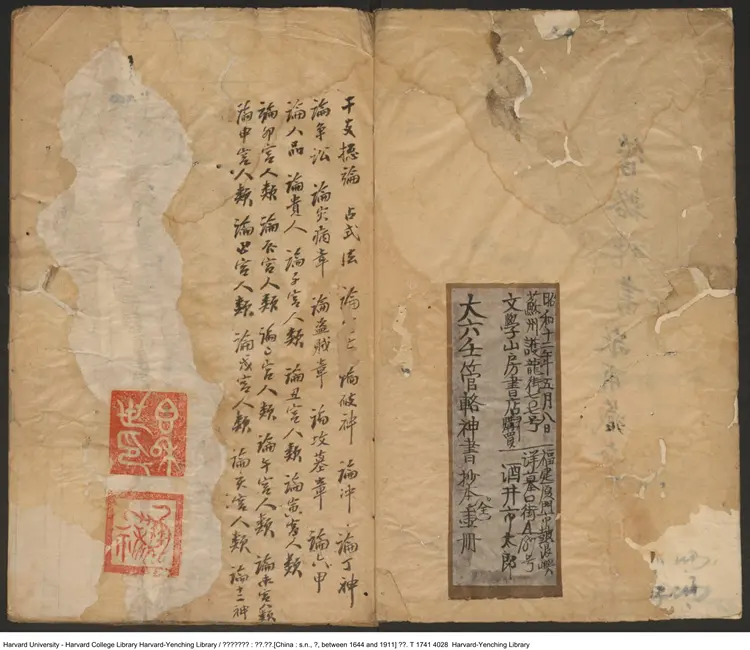 昭和十二年五月八日
蘇州護龍街七〇七号
文學山房書店購買
福建厦門市鼓浪嶼
洋墓口街A87号
酒井市太郎
大六壬管輅神書抄本 全 壹冊
干支總論 占式法 論 論破神 論沖 論丁神
論爭訟 論災病章 論盜賊章 論坟墓章 論六甲
論人品 論貴人 論子宮人類 論丑宮人類 論寅宮人類
論卯宮人類 論辰宮人類 論巳宮人類 論午宮人類 論未宮人類
論申宮人類 論酉宮人類 論戌宮人類 論亥宮人類 論十二神
Harvard University - Harvard College Library Harvard-Yenching Library / ??????? : ??.??.[China : s.n., ?, between 1644 and 1911] ??. T 1741 4028 Harvard-Yenching Library